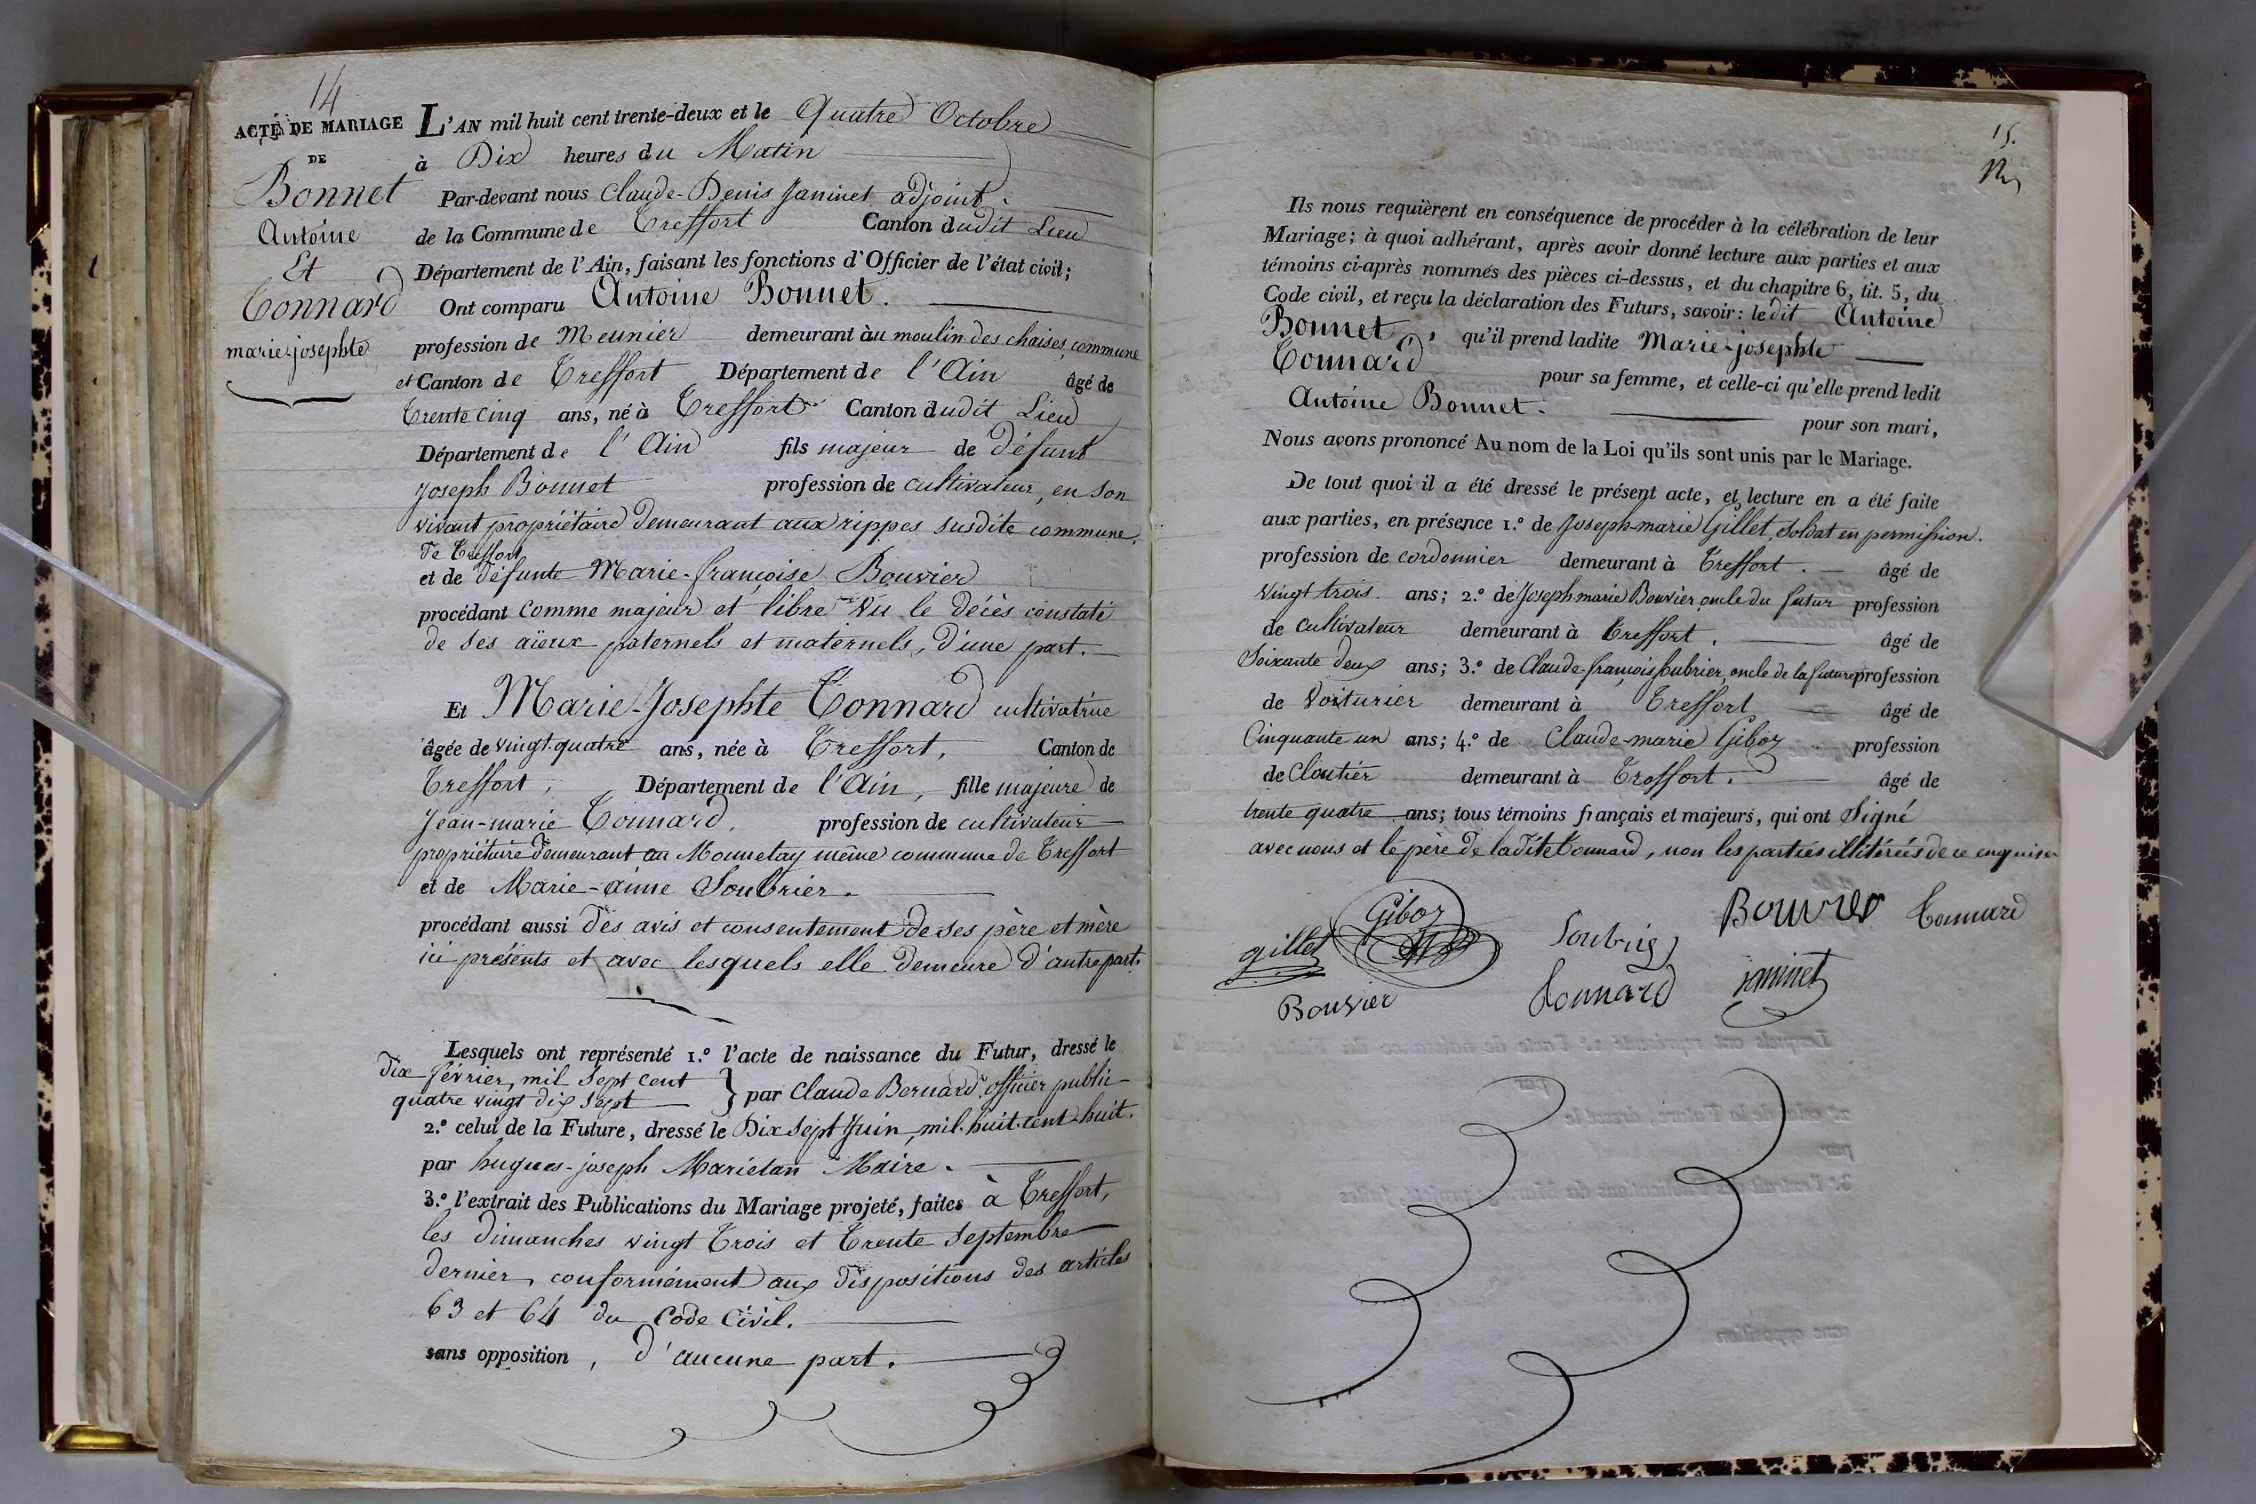 14
ACTE DE MARIAGE
DE
Bonnet
Antoine
Et
Tonnard
marie-josephte
L'AN mil huit cent trente-deux et le Quatre Octobre
à Dix heures du Matin
Par-devant nous Claude-Denis Janinet adjoint
de la Commune de Treffort Canton dudit Lieu
Département de l'Ain, faisant les fonctions d'Officier de l'état civil;
Ont comparu Antoine Bonnet.
profession de Meunier demeurant àu moulin des chaises, commune
et Canton de Treffort Département de l'Ain âgé de
trente cinq ans, né à Treffort Canton dudit Lieu
Département de l'Ain fils majeur de défunt
Joseph Bonnet profession de cultivateur, en son
vivant propriétaire demeurant aux rippes susdite commune,
de Treffort
et de défunte Marie-françoise Bouvier
procédant comme majeur et libre vu le décès constaté
de ses aïeux paternels et maternels, d'une part.
Et Marie-Josephte Tonnard cultivatrice
âgée de vingt-quatre ans, née à Treffort, Canton de
Treffort, Département de l'Ain, fille majeure de
Jean-marie Tonnard, profession de cultivateur
propriétaire demeurant au Mounetay même commune de Treffort
et de Marie-anne Soubrier.
procédant aussi des avis et consentement de ses père et mère
ici présents et avec lesquels elle demeure d'autre part.
Lesquels ont représenté 1.º l'acte de naissance du Futur, dressé le
dix février, mil sept cent
quatre vingt dix sept } par Claude Bernard officier public
2.º celui de la Future, dressé le Dix sept Juin, mil-huit-cent-huit.
par hugues-joseph Marietan Maire.
3.º l'extrait des Publications du Mariage projeté, faites à Treffort,
les dimanches vingt trois et trente septembre
dernier, conformément aux dispositions des articles
63 et 64 du Code Civil.
sans opposition, d'aucune part.
15.
Ils nous requièrent en conséquence de procéder à la célébration de leur
Mariage; à quoi adhérant, après avoir donné lecture aux parties et aux
témoins ci-après nommés des pièces ci-dessus, et du chapitre 6, tit. 5, du
Code civil, et reçu la déclaration des Futurs, savoir: ledit Antoine
Bonnet, qu'il prend ladite Marie-josephte
Tonnard pour sa femme, et celle-ci qu'elle prend ledit
Antoine Bonnet. pour son mari,
Nous avons prononcé Au nom de la Loi qu'ils sont unis par le Mariage.
De tout quoi il a été dressé le présent acte, et lecture en a été faite
aux parties, en présence 1.º de Joseph-marie Gillet, soldat en permission.
profession de cordonnier demeurant à Treffort. âgé de
vingt trois ans; 2.º de Joseph marie Bouvier oncle du futur profession
de cultivateur demeurant à Treffort. âgé de
Soixante deux ans; 3.º de Claude-françois soubrier, oncle de la future profession
de Voiturier demeurant à Treffort âgé de
Cinquante un ans; 4.º de Claude-marie Giboz profession
de Cloutier demeurant à Treffort. âgé de
trente quatre ans; tous témoins français et majeurs, qui ont Signé
avec nous et le père de ladite Tonnard, non les parties illitérées de ce enquises
Giboz
Bouvier
Tonnard
gillet
Soubrier
Bouvier
Tonnard
janinet